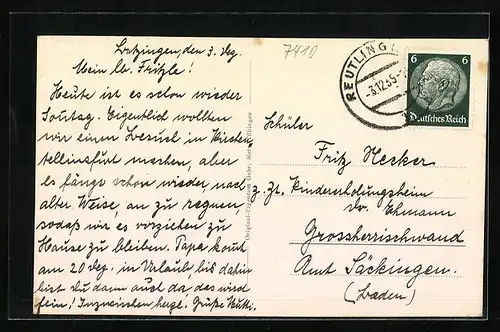 Betzingen, den 3. Dez.
Mein lb. Fritzle!
Heute ist es schon wieder
Sonntag. Eigentlich wollten
wir einen Besuch in Kirchen-
tellinsfurt machen, aber
es fängt schon wieder nach
alter Weise, an zu regnen,
sodaß wir es vorziehen zu
Hause zu bleiben. Papa komt
am 20 Dez. in Urlaub, bis dahin
bist du dann auch da, das wird
fein! Inzwischen herzl. Grüße Mutti.
7410
REUTLINGEN
-3.12.39-
6 6
Deutsches Reich
Schüler
Fritz Hecker
z. Zt. Kindererholungsheim
Dr. Ehmann
Grossherrischwand
Amt Säckingen.
(Baden)
Gebr. Metz, Tübingen